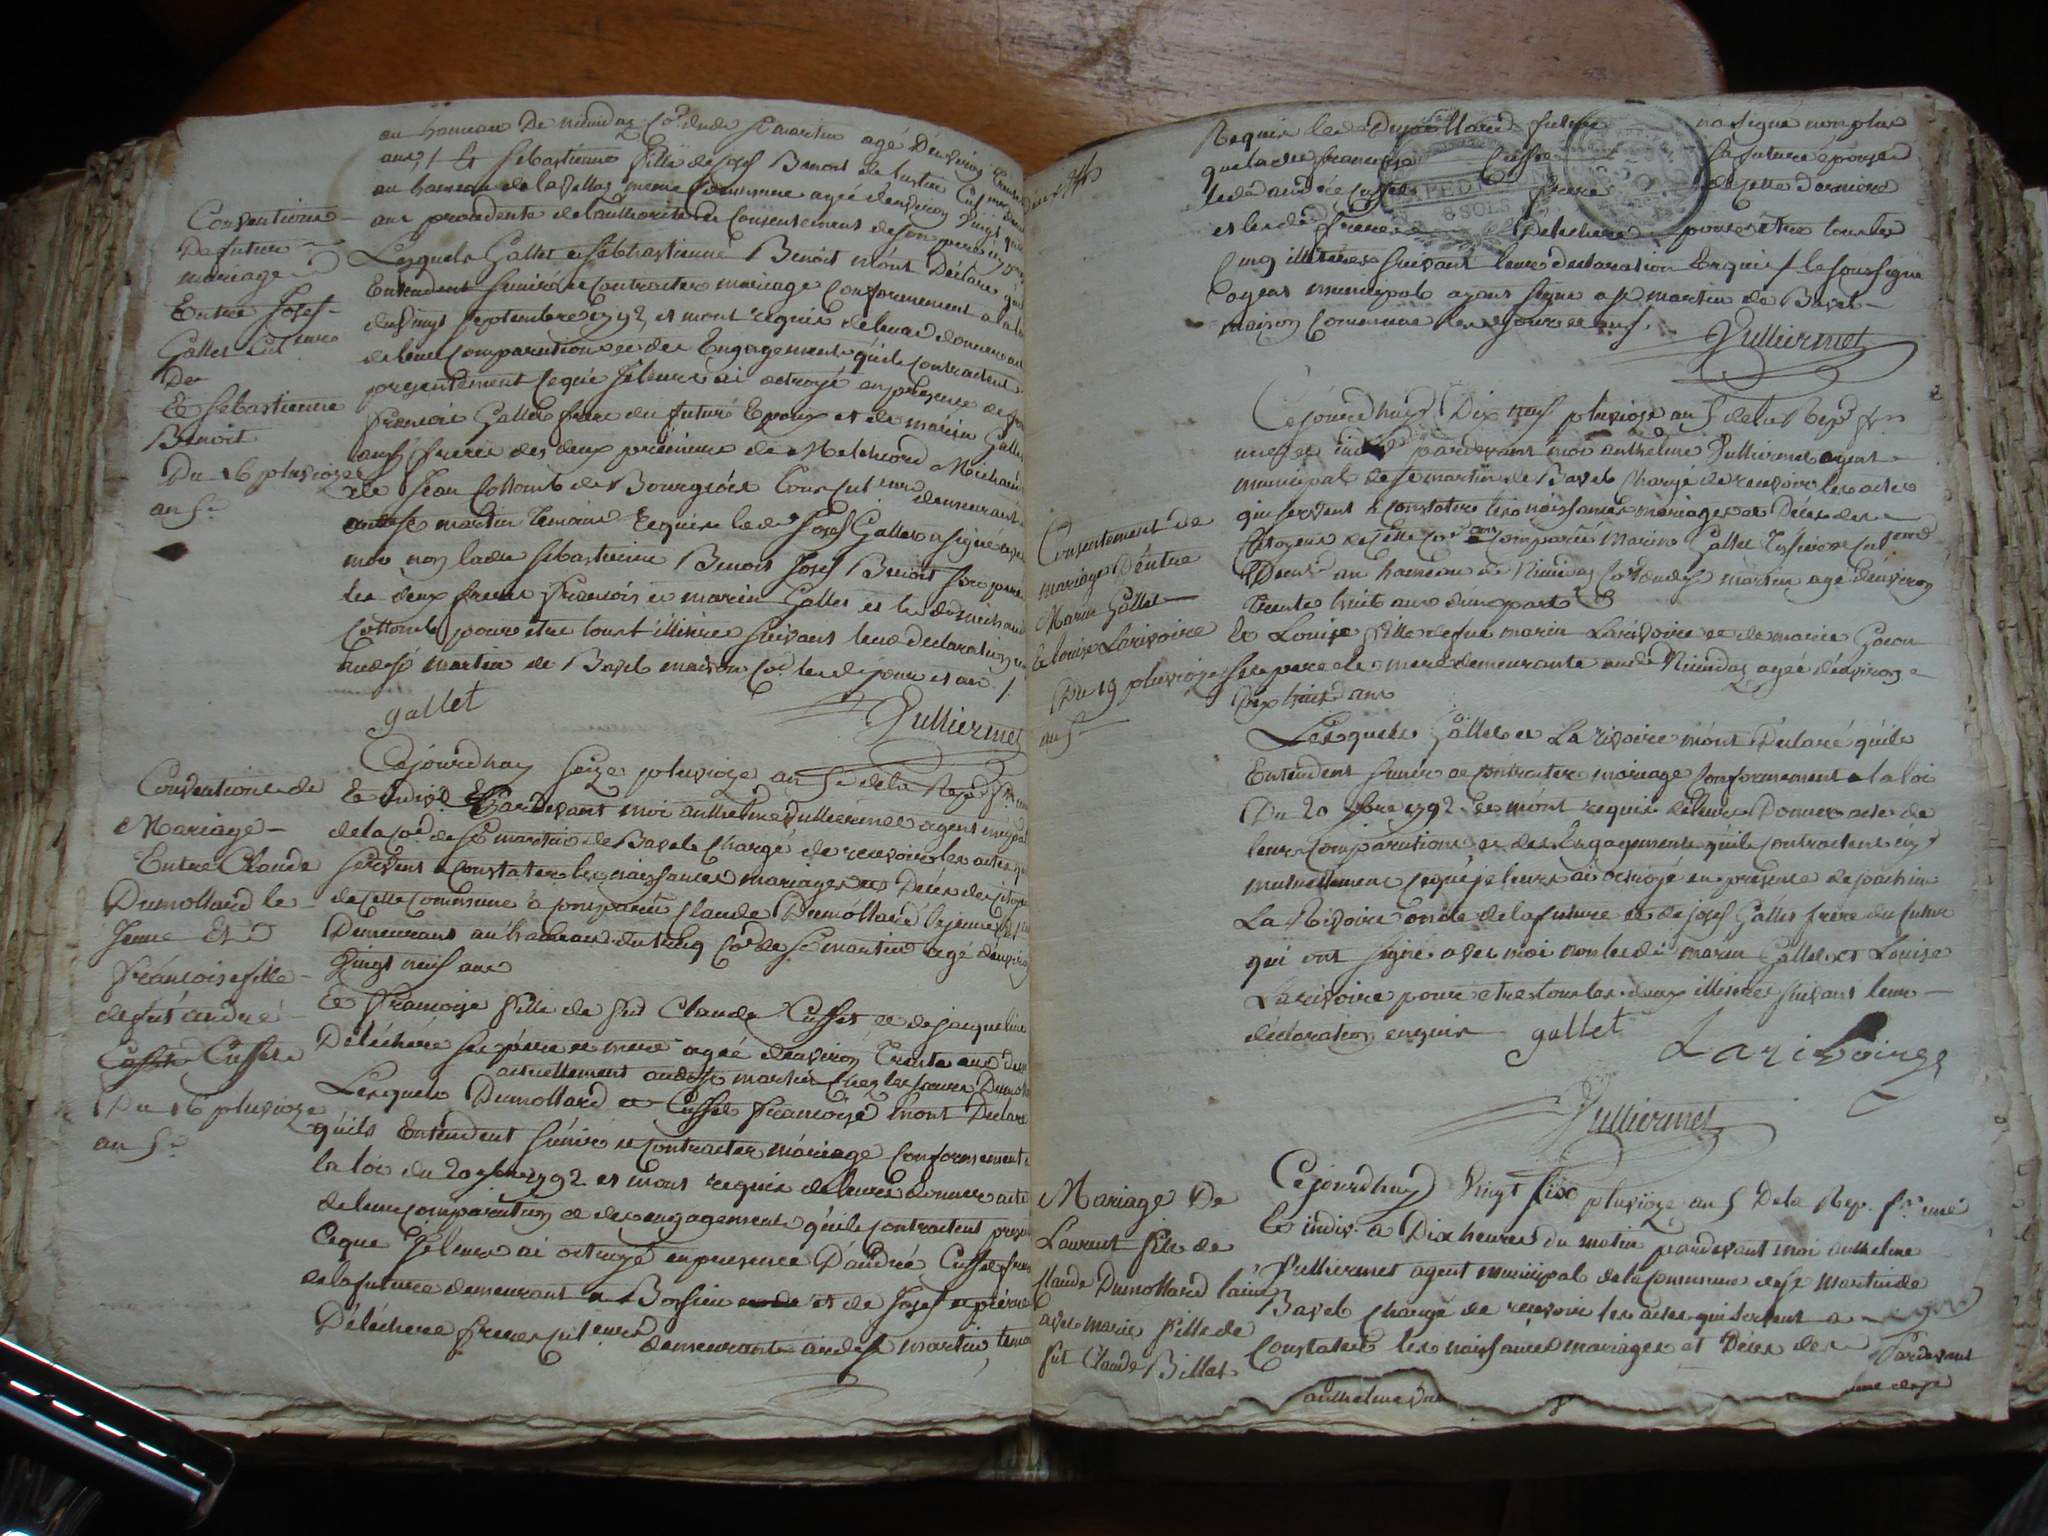 au hameau de nimidaz Co.e dude St martin agé Denviron
ans / Et Sebastienne fille de Josef Benoit de Justine
au hameau de lavellaz meme Commune agée denviron vingt
ans procedente de l'authorité et Consentement de son pere
Conventions
De futur
mariage
Entre Josef
Gallet
De
Et Sebastienne
Benoit
Du 16 pluvioze
an 5e
Lesquels Gallet et Sebastienne Benoit m'ont Déclaré
Entendent s'unir et contracter mariage Conformement a la loi
du vingt septembre 1792 et m'ont requis de leurs donner acte
de leur Comparution et des Engagements qu'ils Contractent
presentement ce que Je leurs ai octroyé en presence de
francois Gallet frere du futur Epoux et de marin Gallet
aussi frere des deux premiers de Melchiord Michaud
de Jean Cottomb de Bourgeois Cons cult.eurs demeurants
audit St martin temoins Requis le dt Josef Gallet a signé avec
moi non ladte Sebastienne Benoit Josef Benoit son pere
les deux freres francois et marin Gallet et les dts michaud
Cottomb pour etre tous illitérés suivant leur declaration
audt St martin de Bavel maison Co.e les dt jour et an /
gallet
Julliermet
Conventions de
Mariage
Entre Claude
Dumollard le
Jeune Et
francoise fille
de fut andré
Cusset
Du 16 pluvioze
an 5e
Cejourdhuy seize pluvioze an 5e de la Rep. fr. une
Et indiv. Pardevant moi anthelme Julliermet agent mupal
de la Coe de St martin de Bavel Chargé de recevoir les actes qui
servent a Constater les naissances mariages et Décès des Citoyens
de cette Commune a Comparu Claude Dumollard le jeune
Demeurant au hameau du Co.e de St martin agé denviron
Vingt neuf ans
Et francoise fille de fut Claude Cusset et de jacqueline
Déléchére ses pere et mere agée denviron Trente ans
actuellement audt St martin Chez les freres Dumollard
Lesquels Dumollard et Cusset francoise m'ont Declaré
qu'ils Entendent s'unir et Contracter mariage Conformement
la loi du 20 7bre 1792 et m'ont requis de leurs donner acte
de leur comparution et des engagements qu'ils contractent
Ce que Je leurs ai octroyé en presence D'andré Cusset frere
de la future demeurant a et de Josef et pierre
Déléchere freres cult.eurs demeurants audt St martin temoins
Requis le dt Dumollard futur na signé non plus
que ladte francoise Cusset sa future épouse
le dt andré Cusset frere de cette derniere
et les dts freres Delechere pour etre tous les
Cinq illitéres suivant leur declaration Enquis / le soussigné
agent municipal ayant signé a St martin de Bavel
maison Commune les jour et an.
EXPEDITION
8 SOLS
Julliermet
Consentement de
mariage D'entre
Marin Gallet
Et louise Larivoire
Du 19 pluvioze
an 5
Cejourdhuy Dix neuf pluvioze an 5 de la Rep. fr.
une et ind. pardevant moi anthelme Julliermet agent
municipal de St martin de Bavel Chargé de recevoir les actes
qui servent a Constater les naissances mariages et Décès des
Citoyens de cette Coe a Comparu Marin Gallet
Demt au hameau de Nimidaz Co.e dudt St martin agé denviron
trente huit ans d'une part
Et Louise fille de feu marin Larivoire et de marie Gojon
ses pere et mere demeurante audt Nimidaz agée d'environ
Dix huit ans
Lesquels Gallet et Larivoire m'ont Déclaré qu'ils
Entendent s'unir et Contracter mariage Conformement a la loi
Du 20 7bre 1792 Et m'ont requis de leurs Donner acte de
leur Comparution et des Engagements qu'ils contractent icy
mutuellement ce que je leurs ai octroyé en presence de joachim
La Rivoire oncle de la future et de josef Gallet frere du futur
qui ont signé avec moi non les dts marin Gallet et Louise
Larivoire pour etre tous les deux illitéres suivant leur
déclaration enquis gallet
Larivoire
Julliermet
Mariage De
Laurent fils de
Claude Dumollard l'ainé
avec marie fille de
fut Claude Billet
Cejourdhuy Vingt six pluvioze an 5 De la Rep. fr. une
Et indiv. a Dix heures du matin pardevant moi anthelme
Julliermet agent municipal de la Commune de St Martin de
Bavel Chargé de recevoir les actes qui servent a
Constater les naissances mariages et Décès des
Pardevant
anthelme